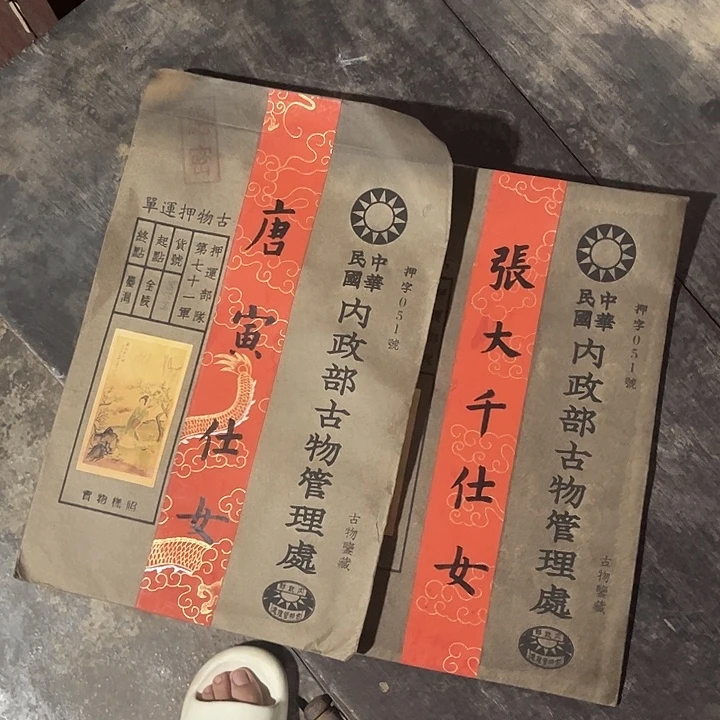 密
古物押運單
押運部隊
第七十一軍
貨號
起點
金陵
終點
臺灣
照樣物實
唐寅仕女
押字051號
中華民國
內政部古物管理處
古物鑒藏
張大千仕女
押字051號
中華民國
內政部古物管理處
古物鑒藏